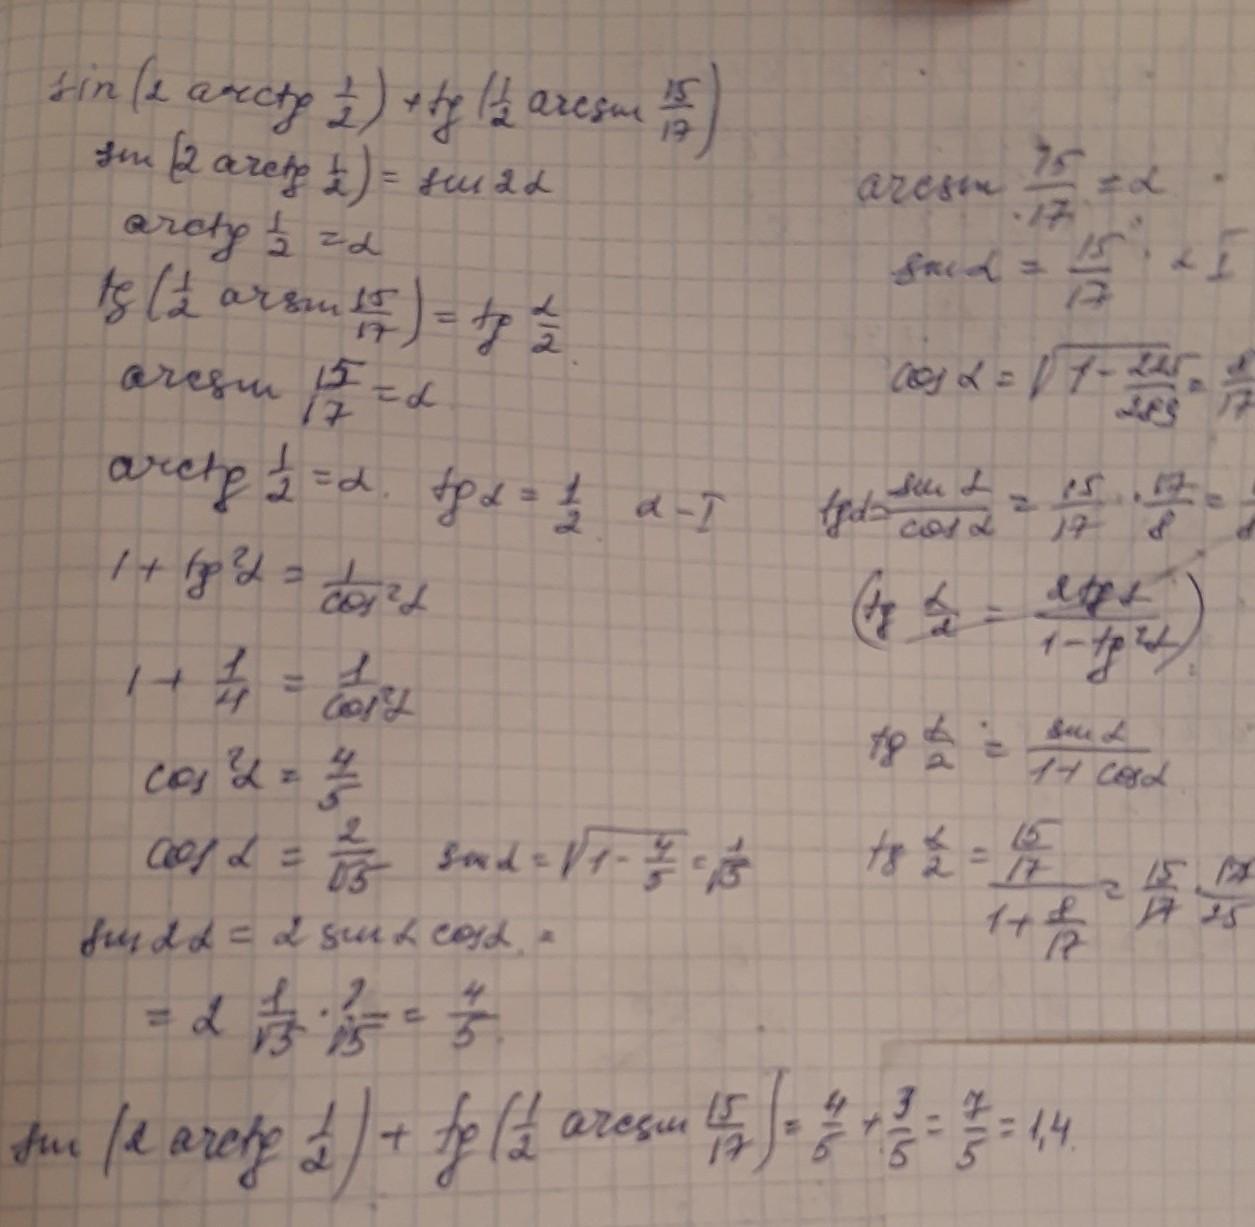 sin(2 arctg 1/2) + tg(1/2 arcsin 15/17)
sin(2 arctg 1/2) = sin 2α
arctg 1/2 = α
tg(1/2 arsin 15/17) = tg α/2
arcsin 15/17 = α
arctg 1/2 = α. tg α = 1/2 α - I
1 + tg²α = 1/cos²α
1 + 1/4 = 1/cos²α
cos²α = 4/5
cos α = 2/√5 sin α = √(1 - 4/5) = 1/√5
sin 2α = 2 sin α cos α =
= 2 1/√5 · 2/√5 = 4/5
arcsin 15/17 = α
sin α = 15/17 α I
cos α = √(1 - 225/289) = 8/17
tg α = sin α/cos α = 15/17 · 17/8 =
(tg α/2 = 2tg α/(1 - tg²α))
tg α/2 = sin α/(1 + cos α)
tg α/2 = (15/17)/(1 + 8/17) = 15/17 · 17/25
sin(2 arctg 1/2) + tg(1/2 arcsin 15/17) = 4/5 + 3/5 = 7/5 = 1,4.